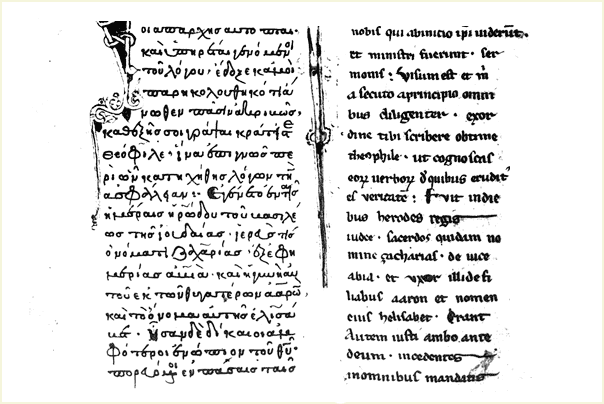 οἱ ἀπαρχῆς αὐτόπται·
καὶ ὑπηρέται γενόμενοι
τοῦ λόγου· ἔδοξε κἀμοὶ
παρηκολουθηκότι ἄ
νωθεν πᾶσιν ἀκριβῶς·
καθεξῆς σοι γράψαι κράτιστε
θεόφιλε· ἵνα ἐπιγνῶς πε
ρὶ ὧν κατηχήθης λόγων τὴν
ἀσφάλειαν: Ἐγένετο ἐν ταῖς
ἡμέραις ἡρώδου τοῦ βασιλέ
ως τῆς ἰουδαίας· ἱερεύς τις
ὀνόματι ζαχαρίας· ἐξ ἐφη
μερίας ἀβιά· καὶ ἡ γυνὴ αὐ
τοῦ ἐκ τῶν θυγατέρων ἀαρὼν
καὶ τὸ ὄνομα αὐτῆς ἐλισά
βετ· ἦσαν δὲ δίκαιοι ἀμ
φότεροι ἐνώπιον τοῦ θυ·
πορευόμενοι ἐν πάσαις ταῖς
nobis qui abinicio ipi uiderut·
et ministri fuerunt· ser
monis: Visum est et m
a secuto aprincipio omni
bus diligenter· exor
dine tibi scribere obtime
theophile· ut cognoscas
eor verbor d'quibus erudit
es veritate: Fuit indie
bus herodes regis
iudee· sacerdos quidam no
mine zacharias· de uice
abia· et uxor illi de fi
liabus aaron et nomen
eius helisabet· Erant
Autem iusti ambo ante
deum· incedentes
inomnibus mandatis